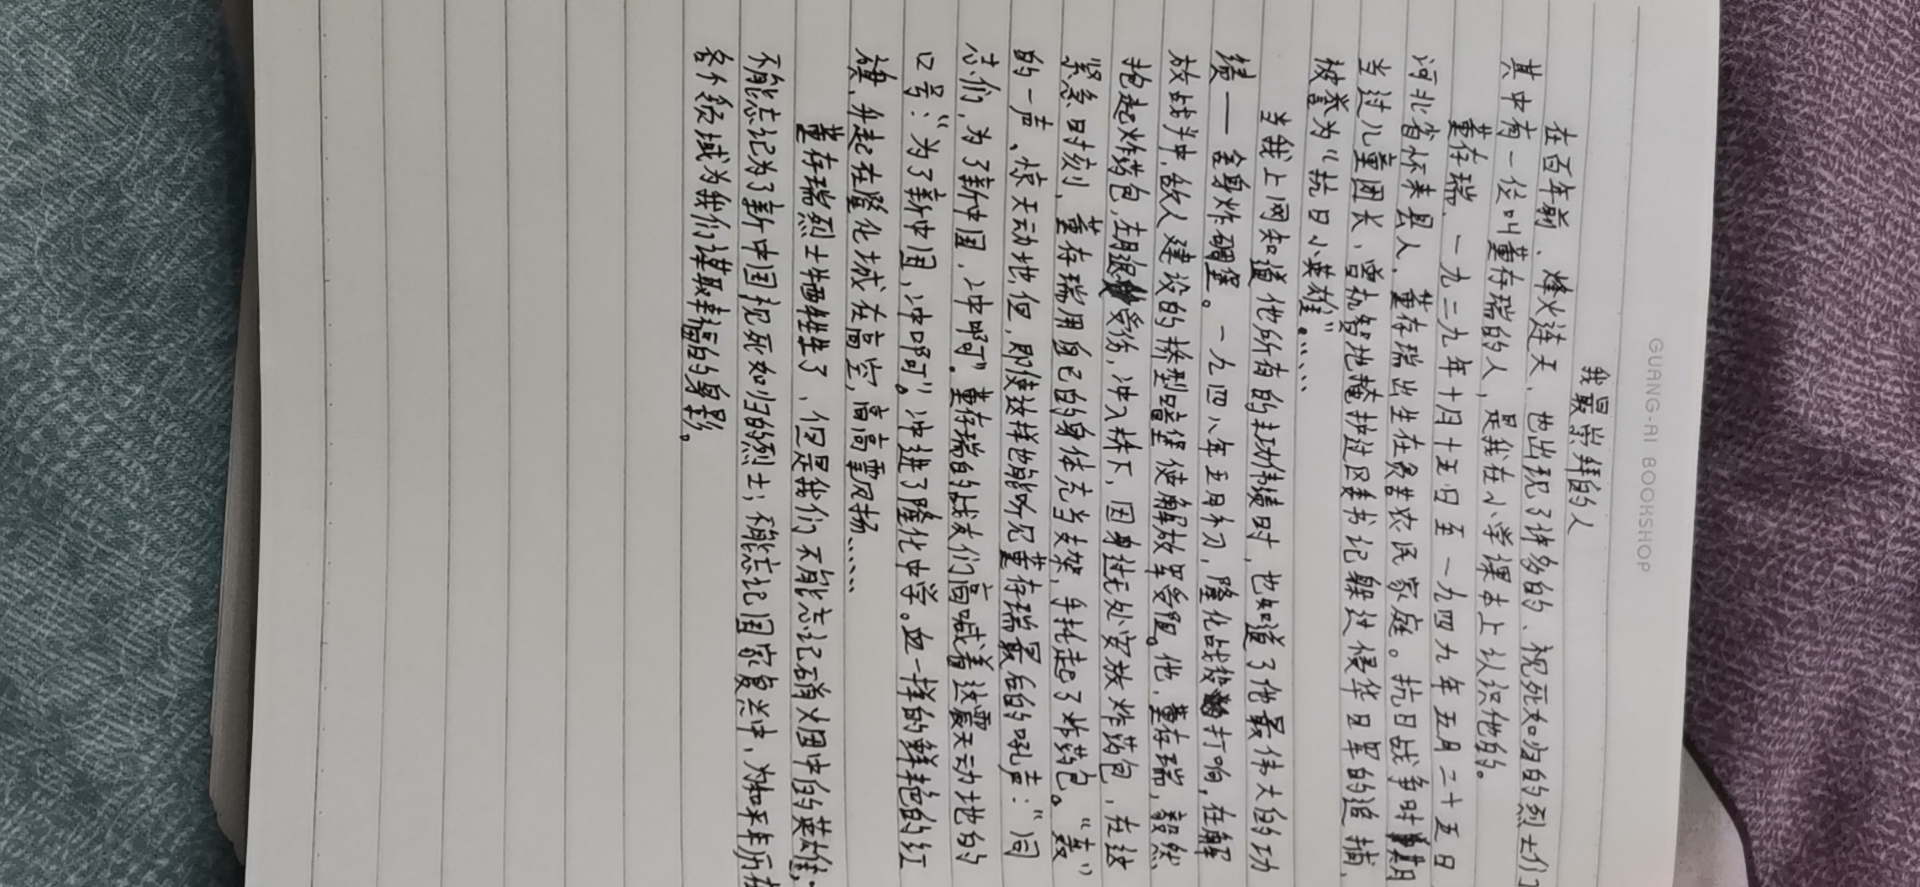 GUANG-AI BOOKSHOP
我最崇拜的人
在百年前、烽火连天、也出现了许多的、视死如归的烈士们
其中有一位叫董存瑞的人，是我在小学课本上认识他的。
董存瑞、一九二九年十月十五日至一九四九年五月二十五日
河北省怀来县人，董存瑞出生在贫苦农民家庭。抗日战争时期
当过儿童团长，曾机智地掩护过区委书记躲过侵华日军的追捕，
被誉为“抗日小英雄”。……
当我上网知道他所有的丰功伟绩时，也知道了他最伟大的功
绩——舍身炸碉堡。一九四八年五月初，隆化战打响，在解
放战斗中，敌人建设的桥型暗堡使解放军受阻。他，董存瑞，毅然
抱起炸药包，左腿受伤，冲入桥下，因身往无处安放炸药包，在这
紧急时刻，董存瑞用自己的身体充当支架，手托起了炸药包。“轰”
的一声、惊天动地，但，即使这样也能听见董存瑞最后的吼声：“同
志们，为了新中国，冲啊”。董存瑞的战友们高喊着这震天动地的
口号：“为了新中国，冲啊”。冲进了隆化中学。血一样的鲜艳的红
旗，升起在隆化城在高空，高高飘扬……
董存瑞烈士牺牲了，但是我们不能忘记硝火烟中的英雄，
不能忘记为了新中国视死如归的烈士；不能忘记国家复兴中、为和平年历在
各个领域为我们谋取幸福的身影。